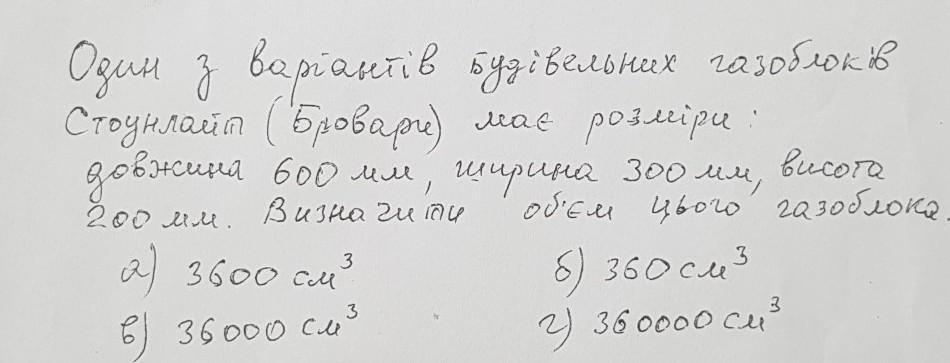 Один з варіантів будівельних газоблоків
Стоунлайт (Бровари) має розміри:
довжина 600 мм, ширина 300 мм, висота
200 мм. Визначити об'єм цього газоблока.
а) 3600 см³ б) 360 см³
в) 36000 см³ г) 360000 см³